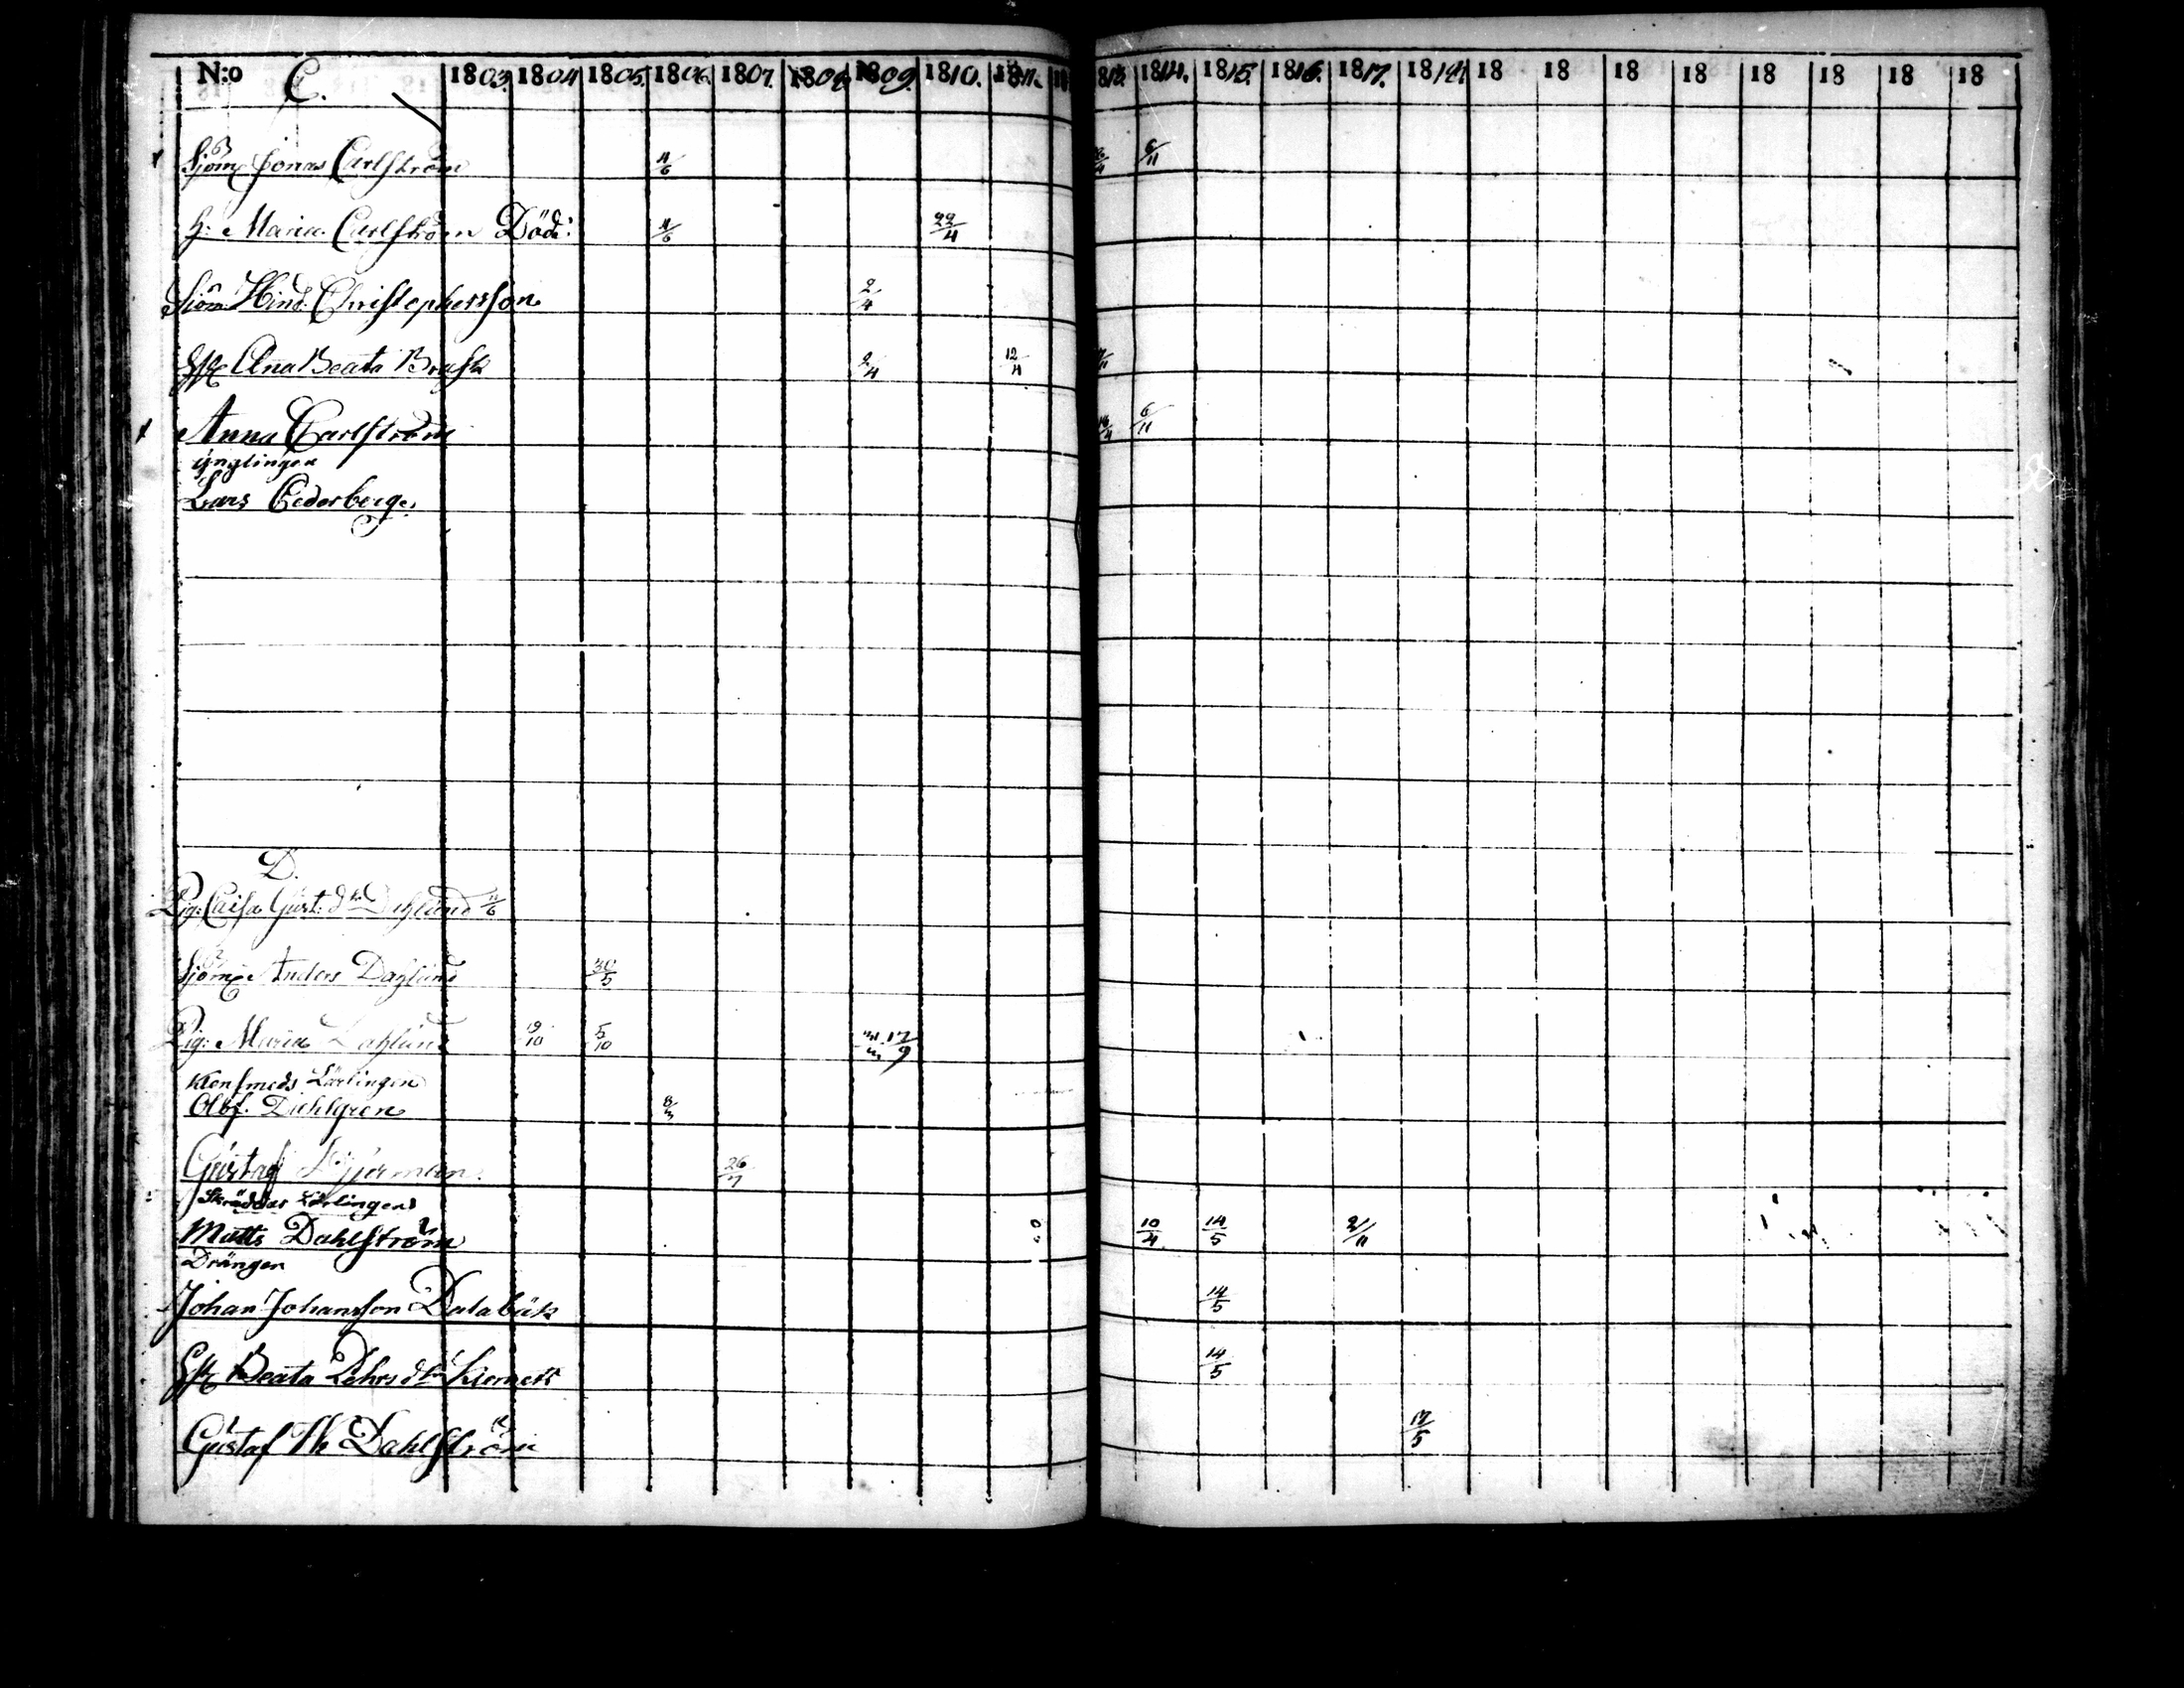 N:o C. 1803. 1804 1805. 1806. 1807. 1808 1809. 1810. 1811. 18 1813. 1814. 1815. 1816. 1817. 1818. 18 18 18 18 18 18 18 18
Sjöm Jonas Carlström 11/6 6/11
h: Maria Carlström Död: 11/6 22/4
Sjöm Hind. Christephersson 2/4
Anna Beata Brask 2/4 12/4
Anna Carlström 6/11
Ynglingen
Lars Cederberg
D.
Pig: Caisa Gust: dr Dahlund 11/6
Sjöm Anders Daglund 30/5
Pig: Maria Dahlund 19/10 5/10 17/9
Klensmeds Lärlingen
Olof. Dahlgren 8/3
Gustaf 26/7
Skräddar Lärlingen
Matts Dahlström 10/4 14/5 2/11
Drängen
Johan Johansson Dalabäk 14/5
Beata 14/5
Gustaf Dahlström 17/5